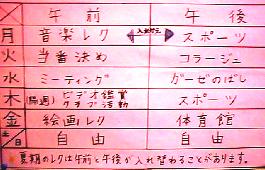 午前 午後
月 音楽レク 入れ替え スポーツ
火 当番決め コラージュ
水 ミーティング ガーゼのばし
木 (隔週) ビデオ鑑賞 クラブ活動 スポーツ
金 絵画レク 体育館
土・日 自由 自由
※夏期のレクは午前と午後が入れ替わることがあります。